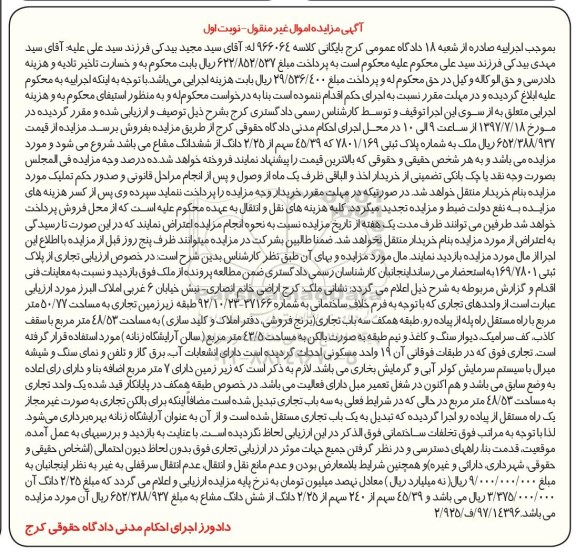 آگهی مزایده اموال غیر منقول - نوبت اول
بموجب اجراییه صادره از شعبه ۱۸ دادگاه عمومی کرج بایگانی کلاسه ۹۶۶۰۶۴ له: آقای سید مجید بیدکی فرزند سید علی علیه: آقای سید
مهدی بیدکی فرزند سید علی محکوم علیه محکوم است به پرداخت مبلغ ۶۲۲/۸۵۲/۵۳۷ ریال بابت محکوم به و خسارت تاخیر تادیه و هزینه
دادرسی و حق الوکاله وکیل در حق محکوم له و پرداخت مبلغ ۲۹/۵۳۶/۴۰۰ ریال بابت هزینه اجرایی می‌باشد.با توجه به اینکه اجراییه به محکوم
علیه ابلاغ گردیده و در مهلت مقرر نسبت به اجرای حکم اقدام ننموده است بنا به درخواست محکوم‌له و به منظور استیفای محکوم به و هزینه
اجرایی متعلق به از سوی این اجرا توقیف و توسط کارشناس رسمی دادگستری کرج بشرح ذیل توصیف و ارزیابی شده و مقرر گردیده در
مورخ ۱۳۹۷/۷/۱۸ از ساعت ۹ الی ۱۰ در محل اجرای احکام مدنی دادگاه حقوقی کرج از طریق مزایده بفروش برسد. مزایده از قیمت
۶۵۲/۳۸۸/۹۳۷ ریال ملک به شماره پلاک ثبتی ۷۸۰۱/۱۶۹ که ۴۵/۳۹ سهم از ۲/۲۵ دانگ از ششدانگ مشاع می باشد شروع می شود و مورد
مزایده می باشد و به هر شخص حقیقی و حقوقی که بالاترین قیمت را پیشنهاد نمایند فروخته خواهد شد.ده درصد وجه مزایده فی المجلس
بصورت وجه نقد یا چک بانکی تضمینی از خریدار اخذ و الباقی ظرف یک ماه از وصول و پس از انجام مراحل قانونی و صدور حکم تملیک مورد
مزایده بنام خریدار منتقل خواهد شد. در صورتیکه در مهلت مقرر خریدار وجه مزایده را پرداخت ننماید سپرده وی پس از کسر هزینه های
مزایده به نفع دولت ضبط و مزایده تجدید میگردد. کلیه هزینه های نقل و انتقال به عهده محکوم علیه است که از محل فروش پرداخت
خواهد شد. طرفین می توانند ظرف مدت یک هفته از تاریخ مزایده نسبت به نحوه انجام مزایده اعتراض نمایند که در این صورت تا رسیدگی
به اعتراض از مورد مزایده بنام خریدار منتقل نخواهد شد. ضمنا طالبین بشرکت در مزایده میتوانند ظرف پنج روز قبل از مزایده با اطلاع این
اجرا از مال مورد مزایده بازدید نمایند. مال مورد مزایده و بهای آن طبق نظر کارشناس بدین شرح است: در خصوص ارزیابی تجاری از پلاک
ثبتی ۱۶۹/۷۸۰۱ به استحضار می رساند اینجانبان کارشناسان رسمی دادگستری ضمن مطالعه پرونده از ملک فوق بازدید و نسبت به معاینات فنی
اقدام و گزارش مربوطه به شرح ذیل اعلام می گردد: نشانی ملک: کرج اراضی خانم انصاری - نبش خیابان ۶ غربی املاک البرز مورد ارزیابی
عبارت است از واحدهای تجاری که با توجه به فرم خلاف ساختمانی به شماره ۳۷۱۶۶-۹۲/۱۰/۲۳ طبقه زیرزمین تجاری به مساحت ۵۰/۷۷ متر
مربع با راه مستقل راه پله از پیاده رو، طبقه همکف سه باب تجاری(برنج فروشی، دفتر املاک و کلید سازی) به مساحت ۴۸/۵۳ متر مربع با سقف
کاذب، کف سرامیک، دیوار سنگ و کاغذ و نیم طبقه به صورت بالکن به مساحت ۴۳/۵ متر مربع(سالن آرایشگاه زنانه) مورد استفاده قرار گرفته
است. تجاری فوق که در طبقات فوقانی آن ۱۹ واحد مسکونی احداث گردیده است دارای انشعابات آب، برق گاز و تلفن و نمای سنگ و شیشه
میرال با سیستم سرمایش کولر آبی و گرمایش بخاری می باشد. لازم به ذکر است که زیر زمین دارای ۷ متر مربع اضافه بنا و دارای رای اعاده
به وضع سابق می باشد و هم اکنون در شغل تعمیر مبل دارای فعالیت می باشد. در خصوص طبقه همکف در پایانکار قید شده یک واحد تجاری
به مساحت ۴۸/۵۳ متر مربع در حالی که در شرایط فعلی به سه باب تجاری تبدیل شده است مضافاً اینکه برای بالکن تجاری به صورت غیرمجاز
یک راه مستقل از پیاده رو اجرا گردیده که تبدیل به یک باب تجاری مستقل شده است و از آن به عنوان آرایشگاه زنانه بهره‌برداری می‌شود.
لذا با توجه به مراتب فوق تخلفات ساختمانی فوق الذکر در این ارزیابی لحاظ نگردیده است. با عنایت به بازدید و بررسیهای به عمل آمده،
موقعیت، قدمت بنا، راههای دسترسی و در نظر گرفتن جمیع جهات موثر در ارزیابی تجاری فوق بدون لحاظ دیون احتمالی (اشخاص حقیقی و
حقوقی، شهرداری، دارائی و غیره)و همچنین شرایط بلامعارض بودن و عدم مانع نقل و انتقال، عدم انتقال سرقفلی به غیر به نظر اینجانبان به
مبلغ ۹/۰۰۰/۰۰۰/۰۰۰ ریال( نه میلیارد ریال) معادل نهصد میلیون تومان به نرخ پایه مزایده ارزیابی و اعلام می گردد که مبلغ ۲/۲۵ دانگ آن
۳/۳۷۵/۰۰۰/۰۰۰ ریال می باشد و ۴۵/۳۹ سهم از ۲۴۰ سهم از ۲/۲۵ دانگ از شش دانگ مشاع به مبلغ ۶۵۲/۳۸۸/۹۳۷ ریال آن مورد مزایده
می باشد.۹۷/۱۴۳۹۶/ف ۲/۹۲۵
دادورز اجرای احکام مدنی دادگاه حقوقی کرج